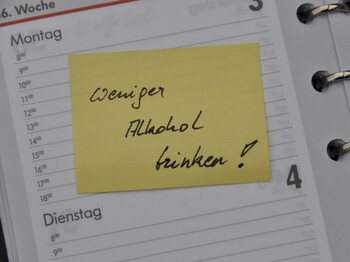 6. Woche
3
Montag
8⁰⁰
9⁰⁰
10⁰⁰
11⁰⁰
12⁰⁰
13⁰⁰
14⁰⁰
15⁰⁰
16⁰⁰
17⁰⁰
18⁰⁰
weniger
Alkohol
trinken!
4
Dienstag
8⁰⁰
9⁰⁰